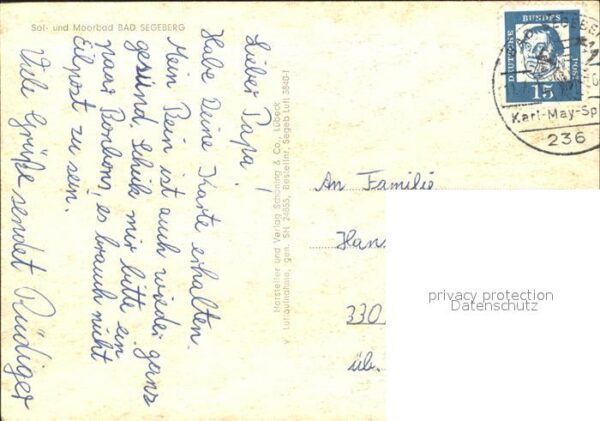 Sol- und Moorbad BAD SEGEBERG
Lieber Papa!
Habe Deine Karte erhalten.
Mein Bein ist auch wieder ganz
gesund. Schick mir bitte ein
paar Bonbons, es brauch nicht
Eilpost zu sein.
Viele Grüße sendet Rüdiger
Hersteller und Verlag Schöning & Co., Lübeck
Luftaufnahme, gen. SH 24855, Bestellnr. Segeb Luft 3840-1
DEUTSCHE
BUNDES
POST
15
Karl-May-Sp
236
An Familie
Hans
330
üb.
privacy protection
Datenschutz